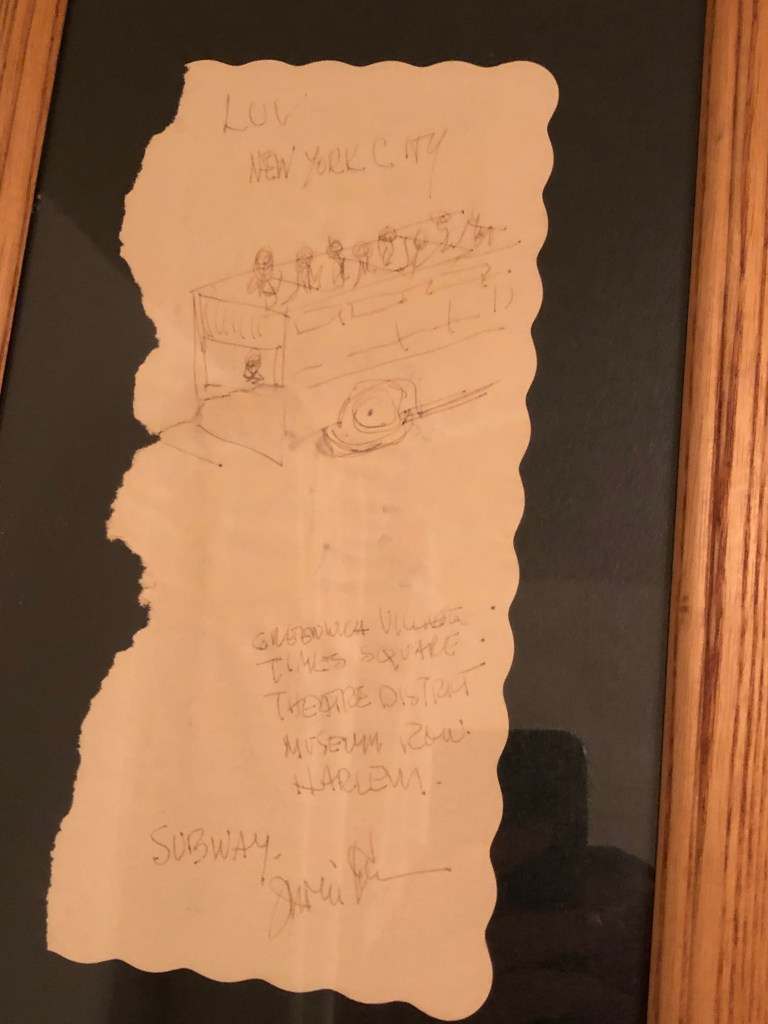 LUV
NEW YORK CITY
GREENWICH VILLAGE
TIMES SQUARE
THEATRE DISTRICT
MUSEUM ROW.
HARLEM.
SUBWAY.